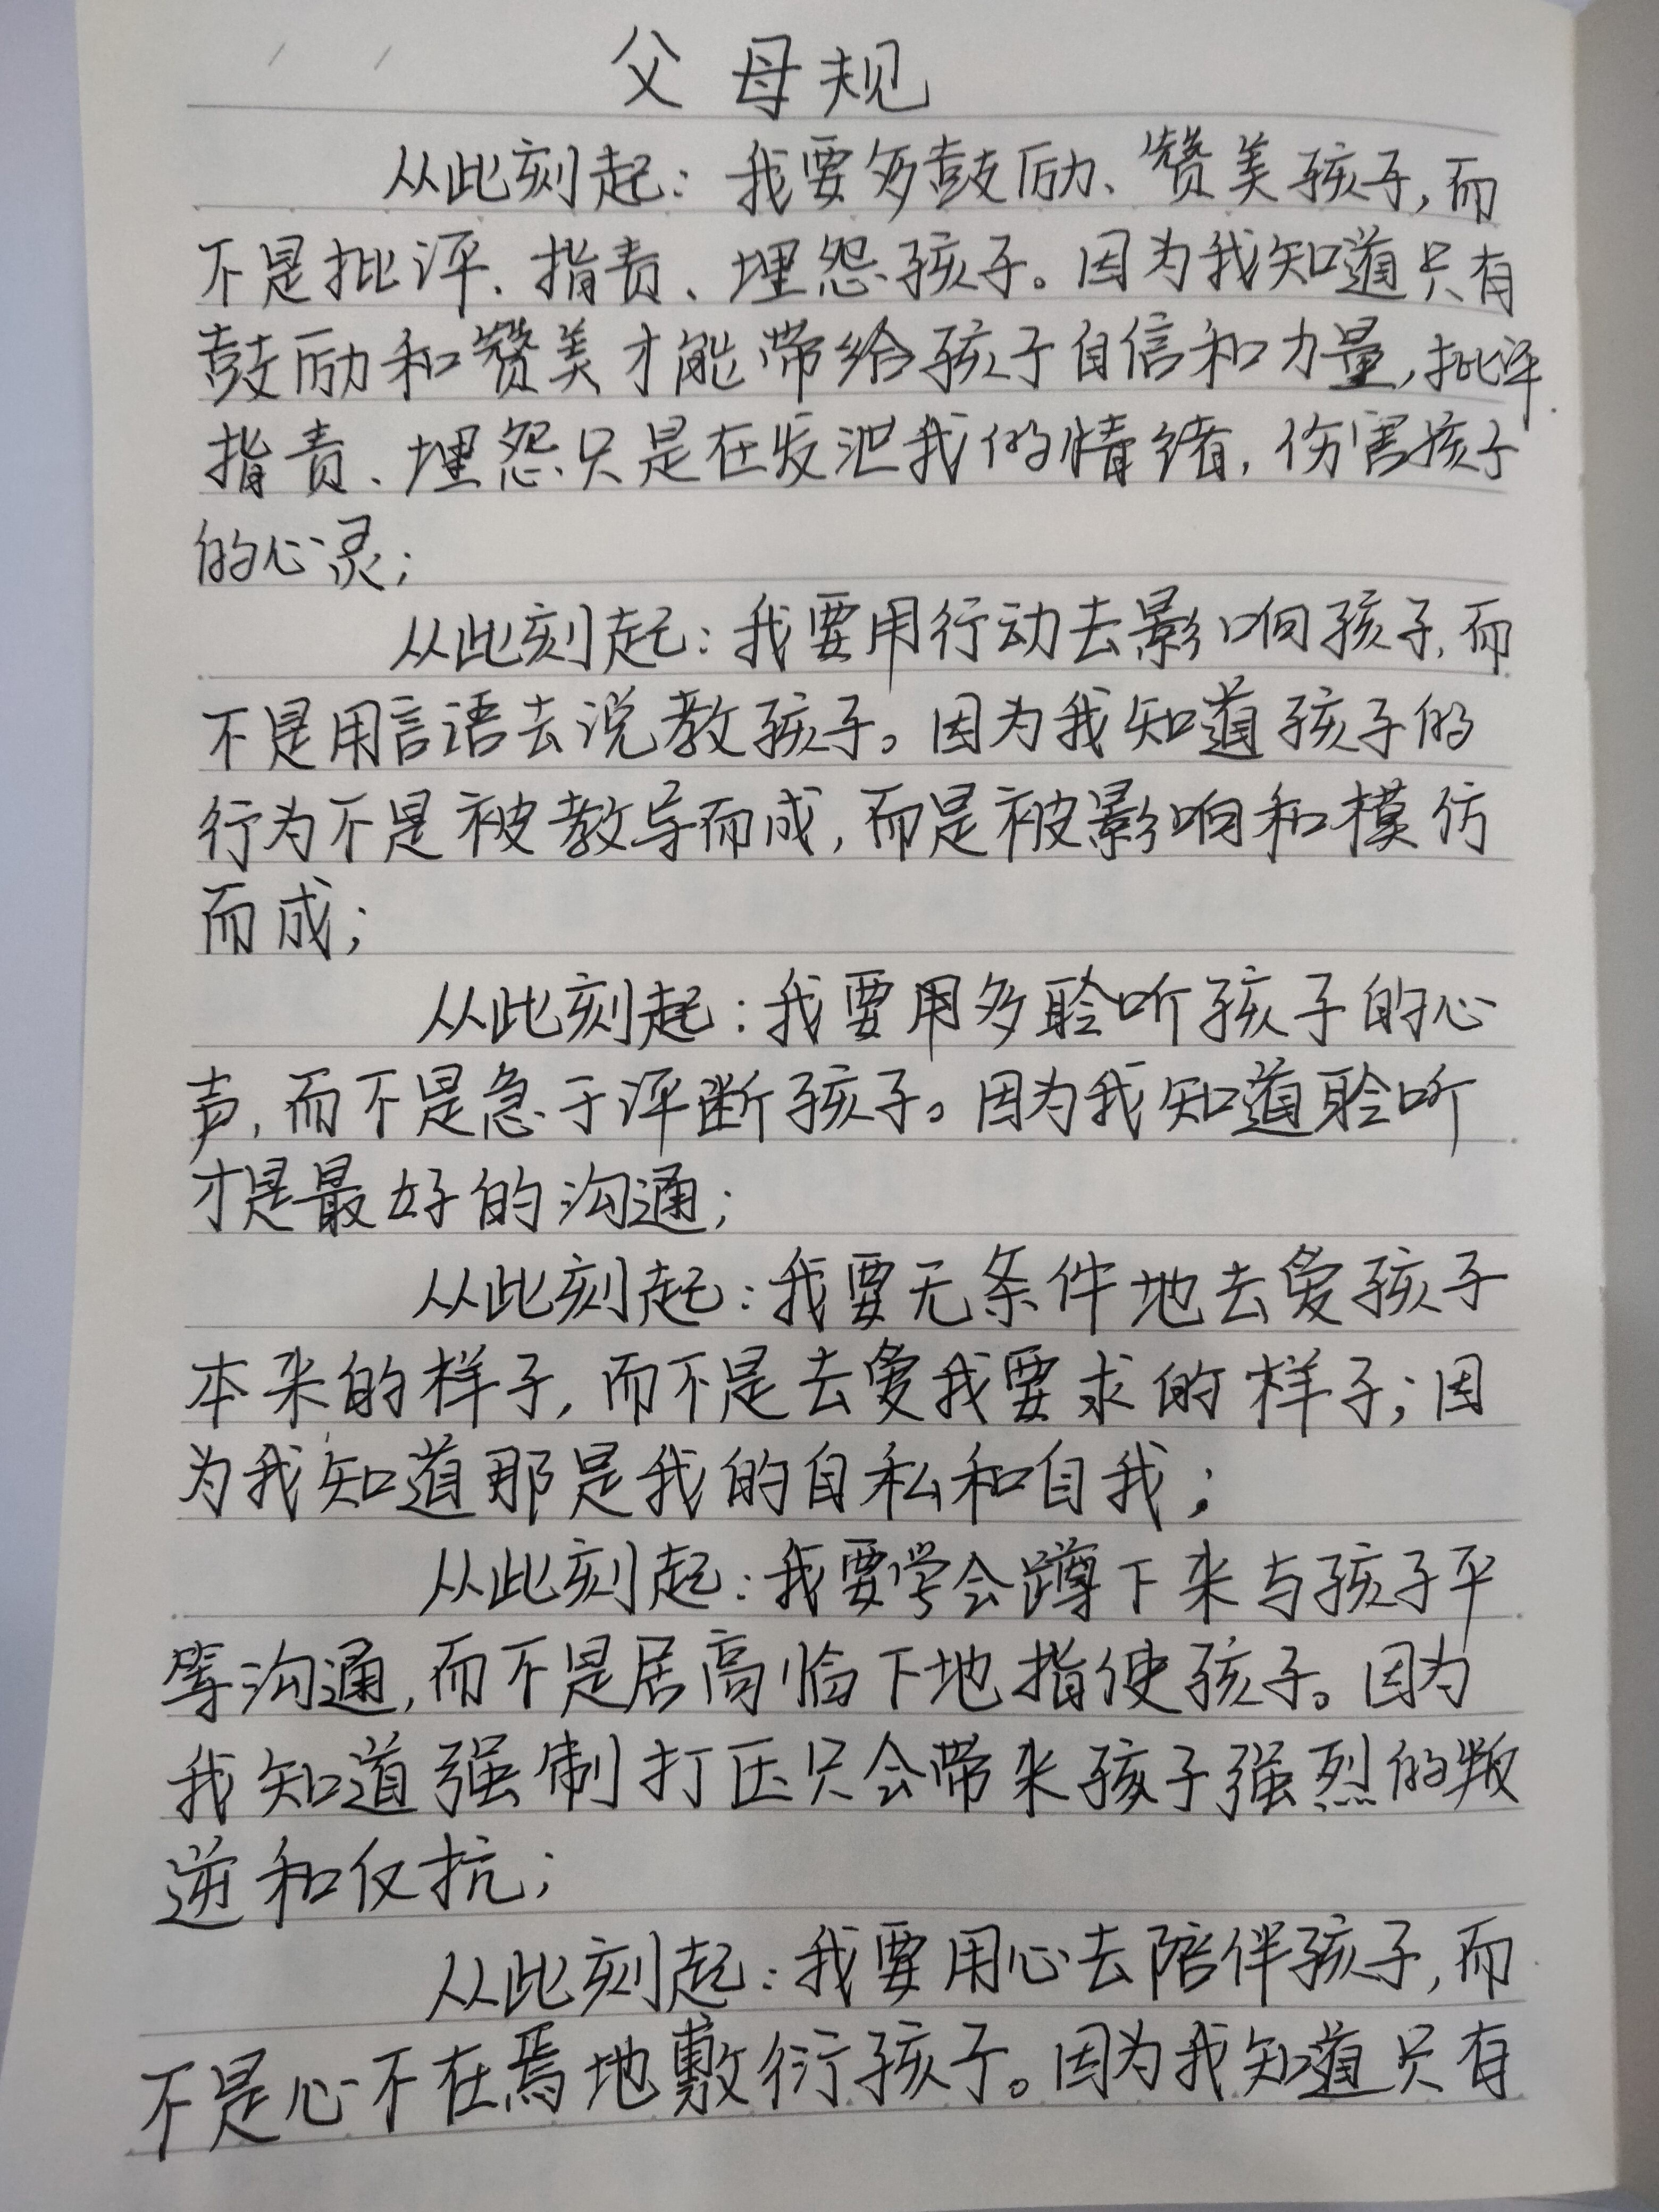 父母规
从此刻起：我要多鼓励、赞美孩子，而
不是批评、指责、埋怨孩子。因为我知道只有
鼓励和赞美才能带给孩子自信和力量，批评
指责、埋怨只是在发泄我的情绪，伤害孩子
的心灵；
从此刻起：我要用行动去影响孩子，而
不是用言语去说教孩子。因为我知道孩子的
行为不是被教导而成，而是被影响和模仿
而成；
从此刻起：我要用多聆听孩子的心
声，而不是急于评断孩子。因为我知道聆听
才是最好的沟通；
从此刻起：我要无条件地去爱孩子
本来的样子，而不是去爱我要求的样子；因
为我知道那是我的自私和自我；
从此刻起：我要学会蹲下来与孩子平
等沟通，而不是居高临下地指使孩子。因为
我知道强制打压只会带来孩子强烈的叛
逆和反抗；
从此刻起：我要用心去陪伴孩子，而
不是心不在焉地敷衍孩子。因为我知道只有